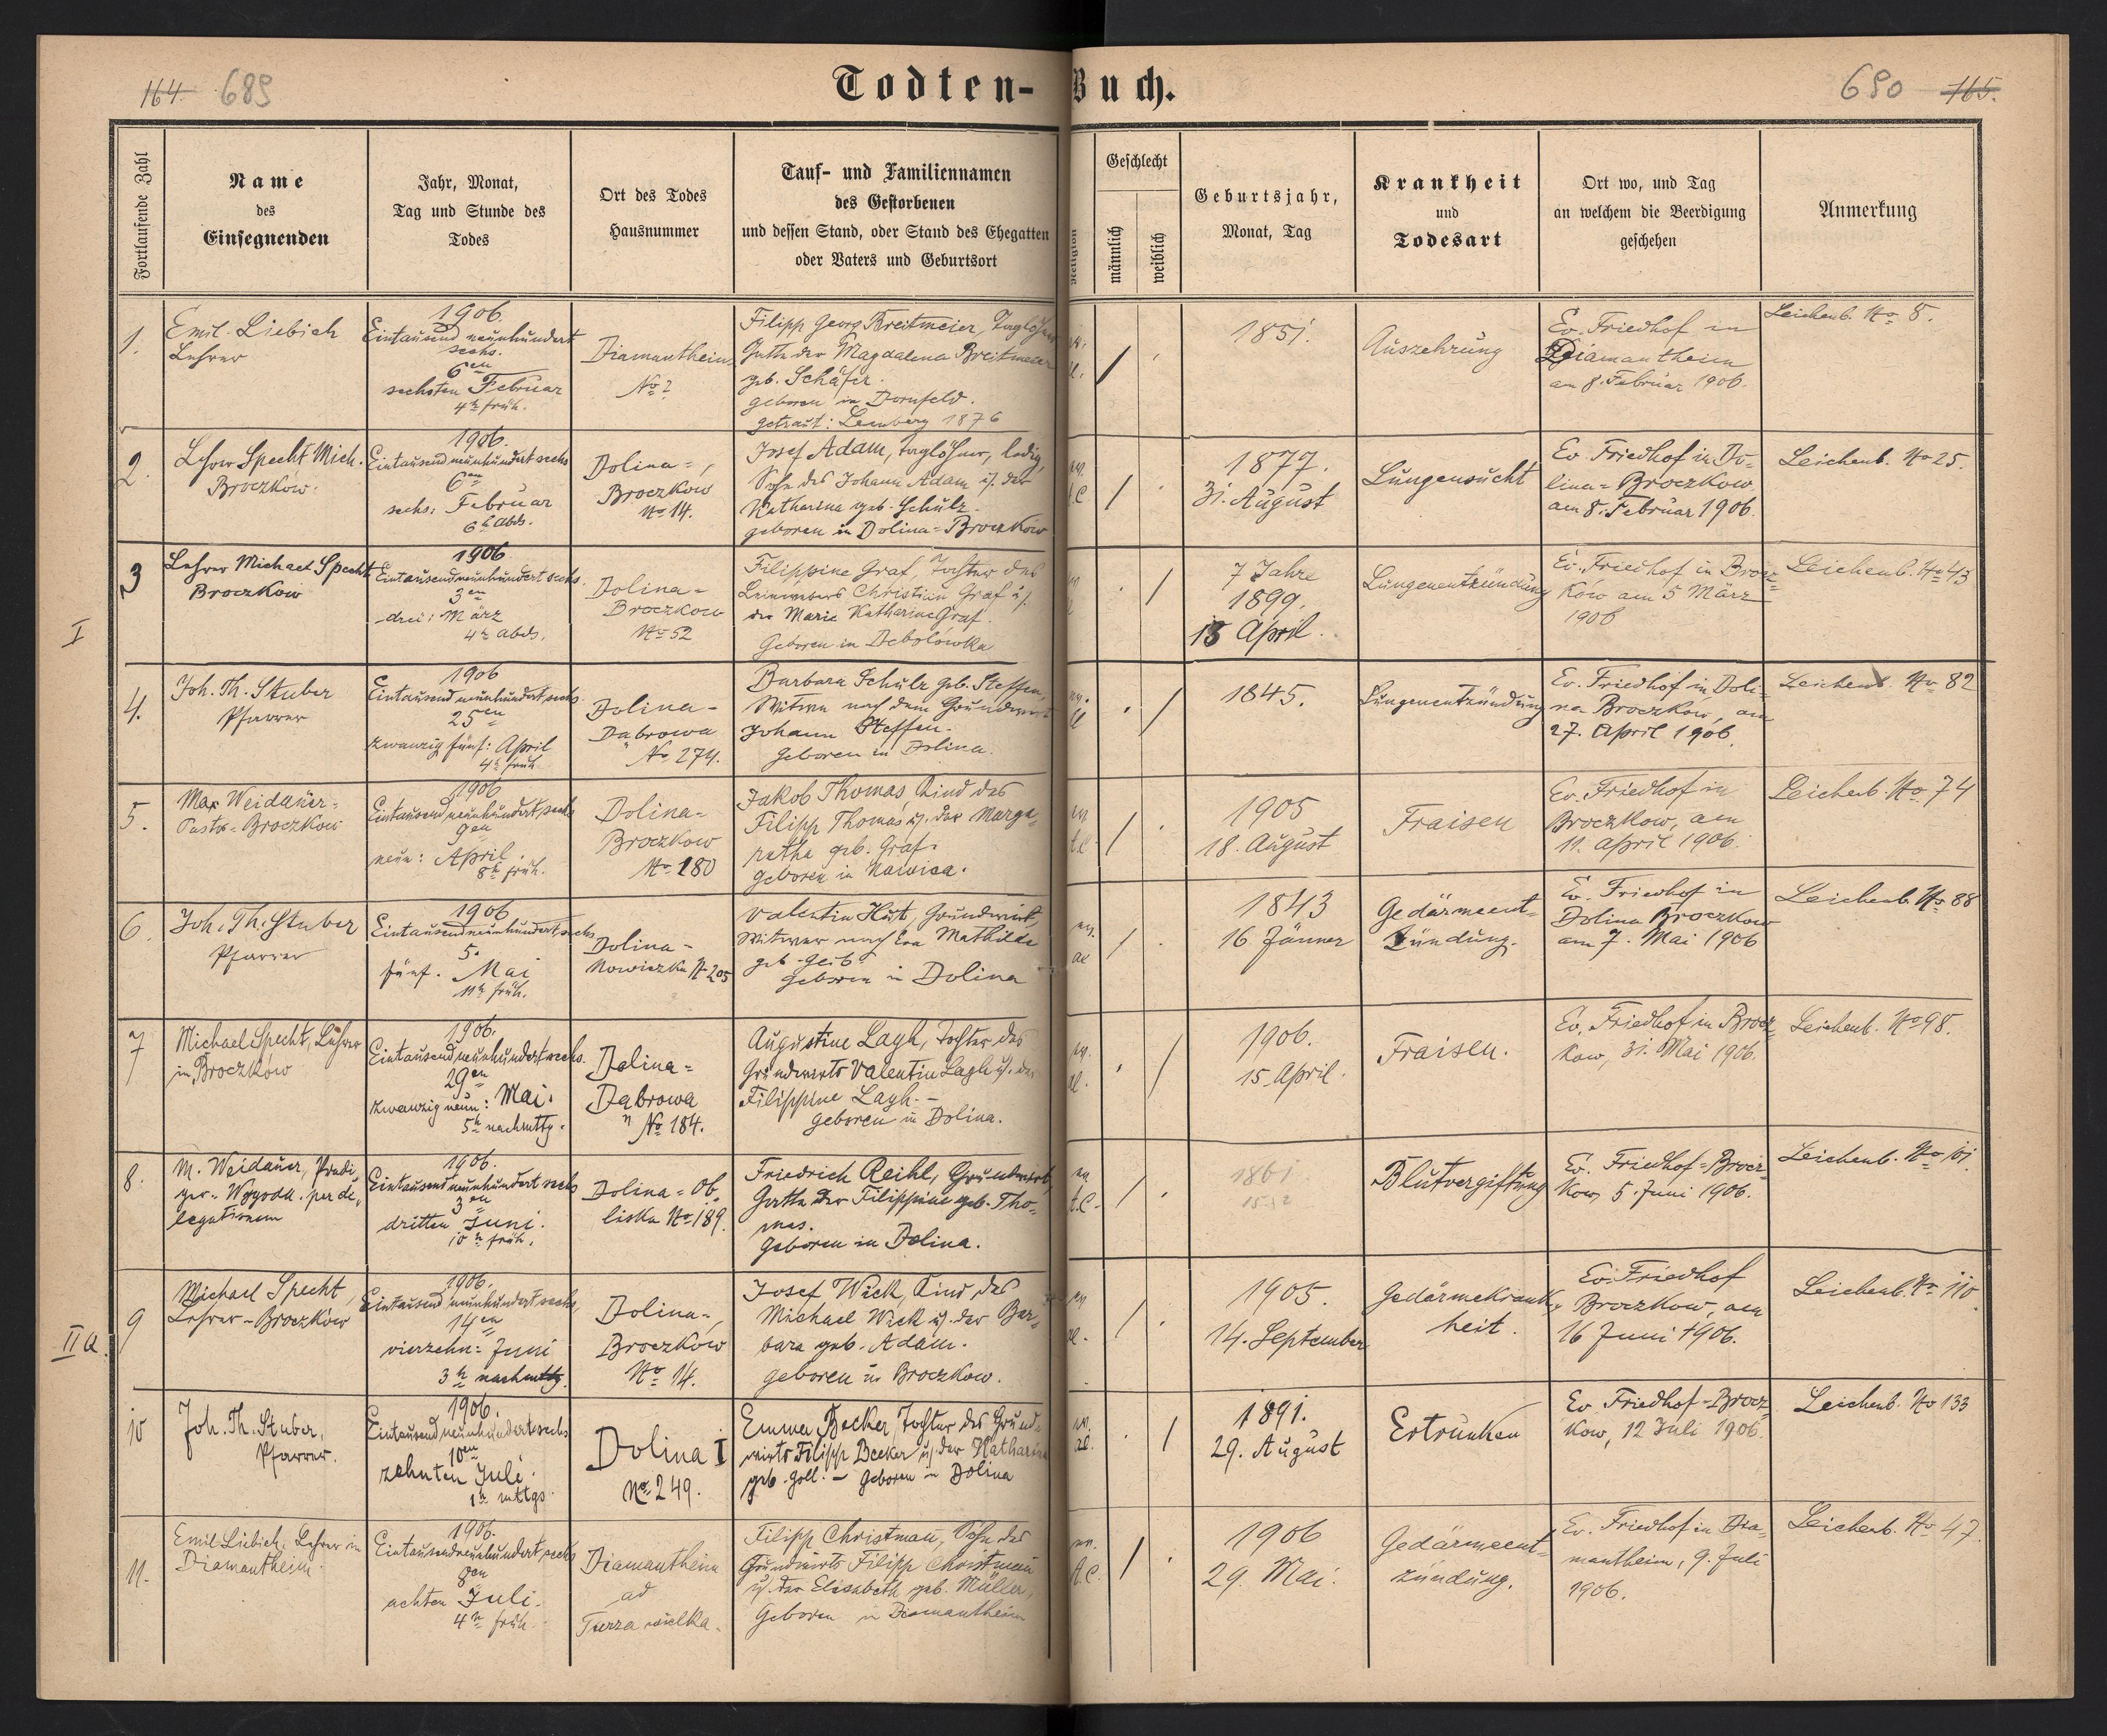 164. 689
Todten-Buch.
690 165.
Fortlaufende Zahl
Name
des
Einsegnenden
Jahr, Monat,
Tag und Stunde des
Todes
Ort des Todes
Hausnummer
Tauf- und Familiennamen
des Gestorbenen
und dessen Stand, oder Stand des Ehegatten
oder Vaters und Geburtsort
Religion
Geschlecht
männlich
weiblich
Geburtsjahr,
Monat, Tag
Krankheit
und
Todesart
Ort wo, und Tag
an welchem die Beerdigung
geschehen
Anmerkung
1.
Emil Liebich
Lehrer
1906.
Eintausend neunhundert
sechs.
6en
sechsten Februar
4h früh.
Diamantheim
No ?
Filipp Georg Breitmeier, Taglöhner
Gatte der Magdalena Breitmeier
geb. Schäfer.
geboren in Dornfeld.
getraut: Lemberg 1876
1851.
Auszehrung
Ev. Friedhof in
Diamantheim
am 8. Februar 1906.
Leichenb. No 8.
2.
Lehrer Specht Mich.
Broczkow.
1906.
Eintausendneunhundertsechs
6en
sechs: Februar
6h abds.
Dolina-
Broczkow
No 14.
Josef Adam, Taglöhner, ledig,
Sohn des Johann Adam u. der
Katharina geb. Schulz.
geboren in Dolina-Broczkow
1877.
31. August
Lungensucht
Ev. Friedhof in Do-
lina-Broczkow
am 8. Februar 1906.
Leichenb. No 25.
I
3
Lehrer Michael Specht
Broczkow
1906
Eintausendneunhundertsechs.
3en
drei: März
4h abds.
Dolina-
Broczkow
No 52
Filippine Graf, Tochter des
Leinwebers Christian Graf u.
der Marie Katharine Graf.
Geboren in Debolówka
7 Jahre
1899.
18 April.
Lungenentzündung
Ev. Friedhof in Brocz-
ków am 5 März
1906
Leichenb. No 43
4.
Joh. Th. Stuber
Pfarrer
1906
Eintausendneunhundertsechs.
25en
zwanzig fünf: April
4h früh.
Dolina-
Dąbrowa
No 274.
Barbara Schulz geb. Steffen,
Witwe nach dem Grundwirt
Johann Steffen.
Geboren in Dolina.
1845.
Lungenentzündung
Ev. Friedhof in Doli-
na Broczkow, am
27. April 1906.
Leichenb. No 82
5.
Max Weidauer-
Pastor-Broczkow
1906
Eintausendneunhundertsechs
9en
neun: April
8h früh.
Dolina-
Broczkow
No 180
Jakob Thomas, Kind des
Filipp Thomas u. der Marga-
retha geb. Graf.
geboren in
1905
18. August
Fraisen
Ev. Friedhof in
Broczkow, am
11. April 1906.
Leichenb. No 74
6.
Joh. Th. Stuber
Pfarrer
1906
Eintausendneunhundertsechs
5.
fünf. Mai
11h früh.
Dolina-
Nowiczka N 205
Valentin Hüst, Grundwirt,
Witwer nach der Mathilde
geb. Geib
Geboren in Dolina
1843
16 Jänner
Gedärment-
zündung.
Ev. Friedhof in
Dolina Broczkow
am 7. Mai 1906
Leichenb. No 88
7
Michael Specht, Lehrer
in Broczków
1906.
Eintausendneunhundertsechs.
29en
zwanzig neun: Mai.
5h nachmttg.
Dolina-
Dąbrowa
No 184.
Augustine Lagh, Tochter des
Grundwirts Valentin Lagh u. der
Filippine Lagh. -
Geboren in Dolina.
1906.
15. April.
Fraisen.
Ev. Friedhof in Brocz-
kow, 31. Mai 1906.
Leichenb. No 98.
8.
M. Weidauer, Predi-
ger-Wygoda. per de-
legationem
1906.
Eintausendneunhundertsechs
3en
dritten Juni.
10h früh.
Dolina-Ob-
liska No 189.
Friedrich Reihl, Grundwirt,
Gatte der Filippine geb. Tho-
mas.
Geboren in Dolina.
1861
Blutvergiftung
Ev. Friedhof-Brocz-
kow, 5. Juni 1906.
Leichenb. No 101.
II a.
9
Michael Specht,
Lehrer-Broczków
1906.
Eintausendneunhundertsechs
14en
vierzehn: Juni
3h nachmttg.
Dolina-
Broczków
No 14.
Josef Wick, Kind des
Michael Wick u. der Bar-
bara geb. Adam.
geboren in Broczkow.
1905.
14. September
Gedärmekrank-
heit.
Ev. Friedhof
Broczkow, am
16 Juni 1906.
Leichenb. No 110
10
Joh. Th. Stuber,
Pfarrer.
1906.
Eintausendneunhundertsechs
10en
zehnten Juli.
1h mttgs.
Dolina I
No 249.
Emma Becker, Tochter des Grund-
wirts Filipp Becker u. der Katharina
geb. Goll. - Geboren in Dolina
1891.
29. August
Ertrunken
Ev. Friedhof-Brocz-
kow, 12 Juli 1906.
Leichenb. No 133
11.
Emil Liebich, Lehrer in
Diamantheim.
1906.
Eintausendneunhundertsechs
8en
achten Juli.
4h früh.
Diamantheim
ad
Turza wielka.
Filipp Christman, Sohn des
Grundwirts Filipp Christman
u. der Elisabeth geb. Müller,
Geboren in Diamantheim
1906
29. Mai.
Gedärment-
zündung.
Ev. Friedhof in Dia-
mantheim, 9. Juli
1906.
Leichenb. No 47.